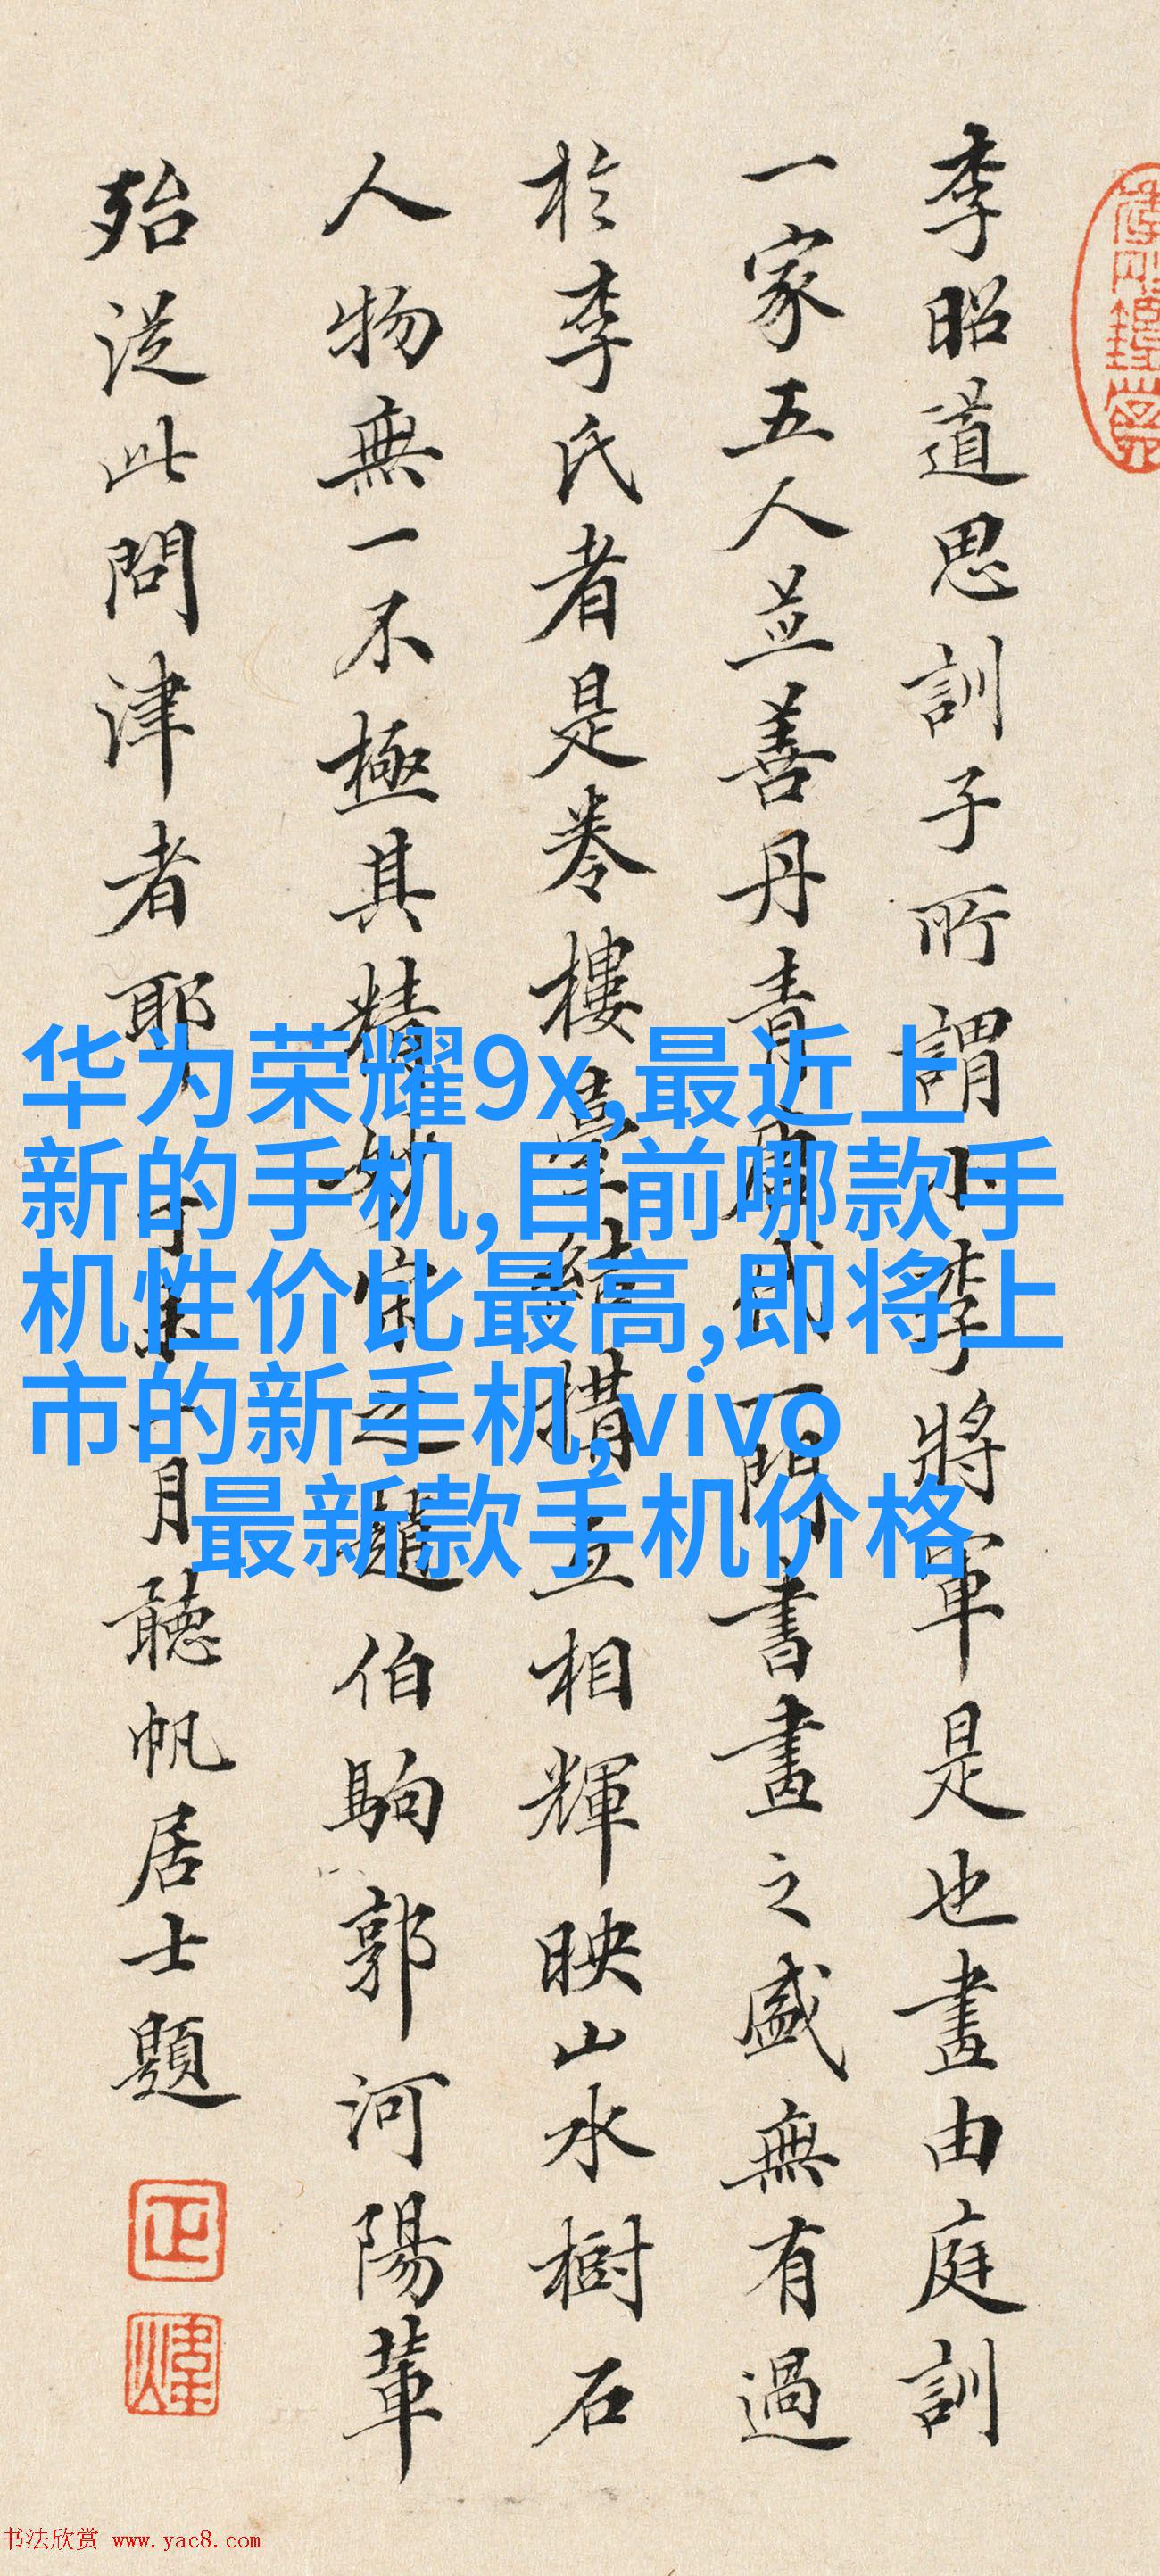 李昭道思訓子所謂小李將軍是也畫由庭訓
一家五人並善丹青唐代一門書畫之盛無有過
於李氏者是卷樓臺結構互相輝映山水樹石
人物無一不極其精妙宋之趙伯駒郭河陽輩
殆從此問津者耶
月聽帆居士題
华为荣耀9x,最近上
新的手机,目前哪款手
机性价比最高,即将上
市的新手机,vivo
最新款手机价格
书法欣赏 www.yac8.com